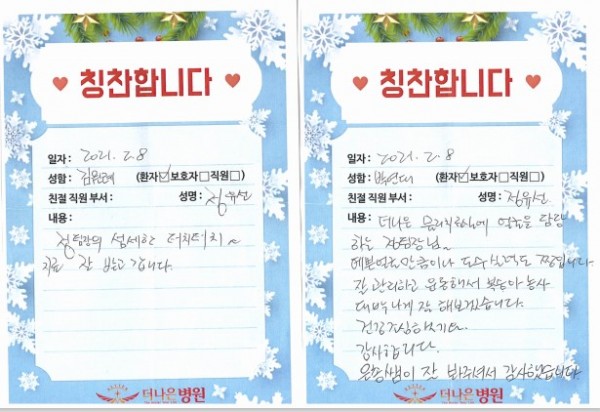 칭찬합니다
일자: 2021. 2. 8
성함: 김원애 (환자☑보호자☐직원☐)
친절 직원 부서: 성명: 정유선
내용:
정팀장의 섬세한 터치터치~
치료 잘 받고 갑니다.
더나은병원
칭찬합니다
일자: 2021. 2. 8
성함: 박연대 (환자☑보호자☐직원☐)
친절 직원 부서: 성명: 정유선
내용: 더나은 물리치료실에 얼굴을 담당
하는 정팀장님~
예쁜얼굴만큼이나 도수실력도 짱입니다.
잘 관리하고 운동해서 복숭아 농사
대박나게 잘 해보겠습니다.
건강조심하시기
감사합니다.
윤종쌤이 잘 봐주셔서 감사했습니다
더나은병원